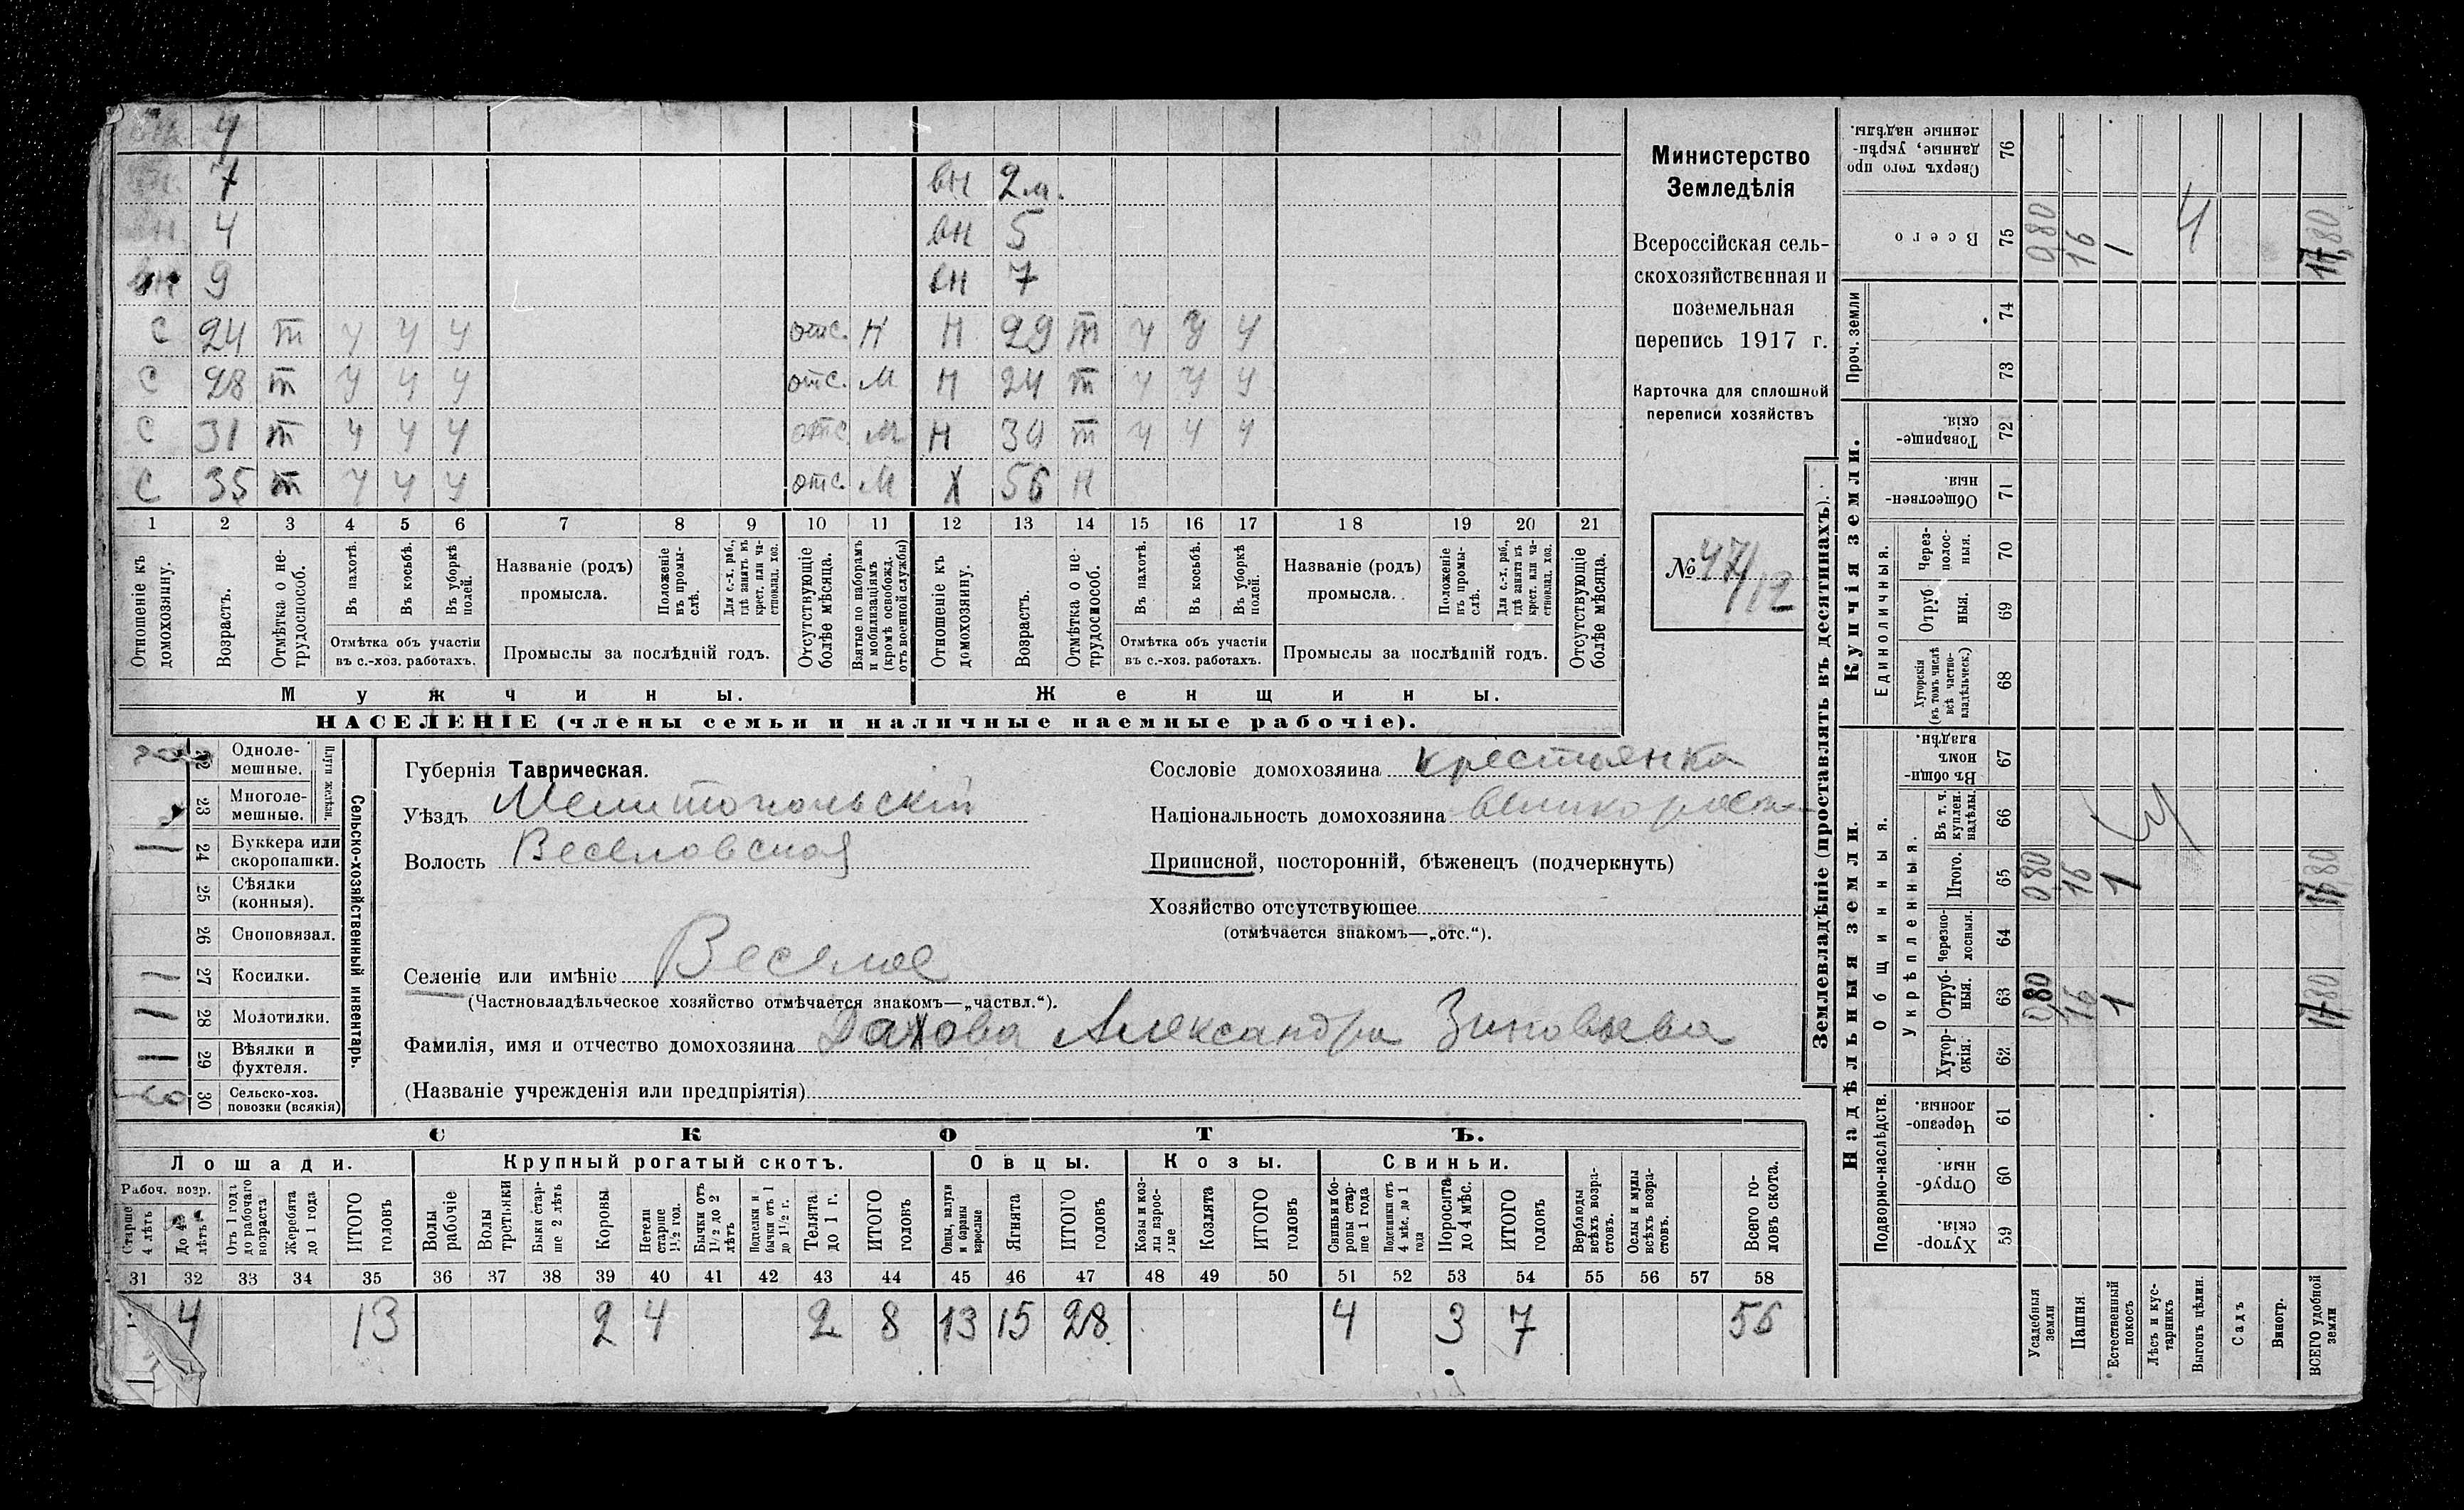 вн 4
вн. 7 вн 2 м.
вн 4 вн 5
вн 9 вн 7
с 24 т ч ч ч отс. М Н 29 т ч ч ч
с 28 т ч ч ч отс. М Н 24 т ч ч ч
с 31 т ч ч ч отс. М Н 30 т ч ч ч
с 35 т ч ч ч отс. М Х 56 н
1 2 3 4 5 6 7 8 9 10 11 12 13 14 15 16 17 18 19 20 21
Отношеніе къ домохозяину.
Возрастъ.
Отмѣтка о не-трудоспособ.
Въ пахотѣ.
Въ косьбѣ.
Въ уборкѣ полей.
Отмѣтка объ участіи
въ с.-хоз. работахъ.
Названіе (родъ)
промысла.
Положеніе въ промы-слѣ.
Для с.-х. раб., гдѣ занятъ въ крест. или ча-стновлад. хоз.
Промыслы за послѣдній годъ.
Отсутствующіе болѣе мѣсяца.
Взятые по наборамъ и мобилизаціямъ (кромѣ освобожд. отъ военной службы)
Отношеніе къ домохозяину.
Возрастъ.
Отмѣтка о не-трудоспособ.
Въ пахотѣ.
Въ косьбѣ.
Въ уборкѣ полей.
Отмѣтка объ участіи
въ с.-хоз. работахъ.
Названіе (родъ)
промысла.
Положеніе въ промы-слѣ.
Для с.-х. раб., гдѣ занята въ крест. или ча-стновлад. хоз.
Промыслы за послѣдній годъ.
Отсутствующіе болѣе мѣсяца.
Мужчины. Женщины.
НАСЕЛЕНІЕ (члены семьи и наличные наемные рабочіе).
Министерство
Земледѣлія
Всероссійская сель-
скохозяйственная и
поземельная
перепись 1917 г.
Карточка для сплошной
переписи хозяйствъ
№ 47/12
Сельско-хозяйственный инвентарь.
Плуги желѣзн.
22 Одноле-
мешные.
23 Многоле-
мешные.
1 24 Буккера или
скоропашки.
25 Сѣялки
(конныя).
26 Сноповязал.
1 27 Косилки.
1 28 Молотилки.
1 29 Вѣялки и
фухтеля.
30 Сельско-хоз.
повозки (всякія)
Губернія Таврическая.
Уѣздъ Мелитопольскій
Волость Веселовская
Сословіе домохозяина крестьянка
Національность домохозяина великоросс
Приписной, посторонній, бѣженецъ (подчеркнуть)
Хозяйство отсутствующее
(отмѣчается знакомъ—„отс.“).
Селеніе или имѣніе Веселое
(Частновладѣльческое хозяйство отмѣчается знакомъ—„частвл.“).
Фамилія, имя и отчество домохозяина Дахова Александра Зиновьева
(Названіе учрежденія или предпріятія)
СКОТЪ.
Лошади. Крупный рогатый скотъ. Овцы. Козы. Свиньи.
Рабоч. возр.
Старше 4 лѣтъ
До 4 лѣтъ
Отъ 1 года до рабочаго возраста
Жеребята до 1 года
ИТОГО головъ
Волы рабочіе
Волы третьяки
Быки стар-ше 2 лѣтъ
Коровы
Нетели старше 1½ год.
Бычки отъ 1½ до 2 лѣтъ
Подтелки и бычки отъ 1 до 1½ г.
Телята до 1 г.
ИТОГО головъ
Овцы, валухи и бараны взрослые
Ягнята
ИТОГО головъ
Козы и коз-лы взрос-лые
Козлята
ИТОГО головъ
Свиньи и бо-ровы стар-ше 1 года
Подсвинки отъ 4 мѣс. до 1 года
Поросята до 4 мѣс.
ИТОГО головъ
Верблюды всѣхъ возра-стовъ.
Ослы и мулы всѣхъ возра-стовъ.
Всего го-ловъ скота.
31 32 33 34 35 36 37 38 39 40 41 42 43 44 45 46 47 48 49 50 51 52 53 54 55 56 57 58
4 13 2 4 2 8 13 15 28 4 3 7 56
Землевладѣніе (проставлять въ десятинахъ).
Надѣльныя земли. Купчія земли. Проч. земли
Подворно-наслѣдств.
Общинныя.
Укрѣпленныя.
Единоличныя.
Сверхъ того про-данные, укрѣп-ленные надѣлы. 76
Всего 75 0,80 16 1 17,80
74
73
Товарище-скія. 72
Обществен-ныя. 71
Через-полос-ныя. 70
Отруб-ныя. 69
Хуторскія (въ томъ числѣ всѣ частно-владѣльческ.) 68
Въ общи-номъ владѣн. 67
Въ т. ч. куплен. надѣлы. 66
Итого. 65 0,80 16 1 17,80
Черезпо-лосныя. 64
Отруб-ныя. 63 0,80 16 1 17,80
Хутор-скія. 62
Черезпо-лосныя. 61
Отруб-ныя. 60
Хутор-скія. 59
Усадебныя земли
Пашня
Естественный покосъ
Лѣсъ и кус-тарникъ
Выгонъ цѣлин.
Садъ
Виногр.
ВСЕГО удобной земли